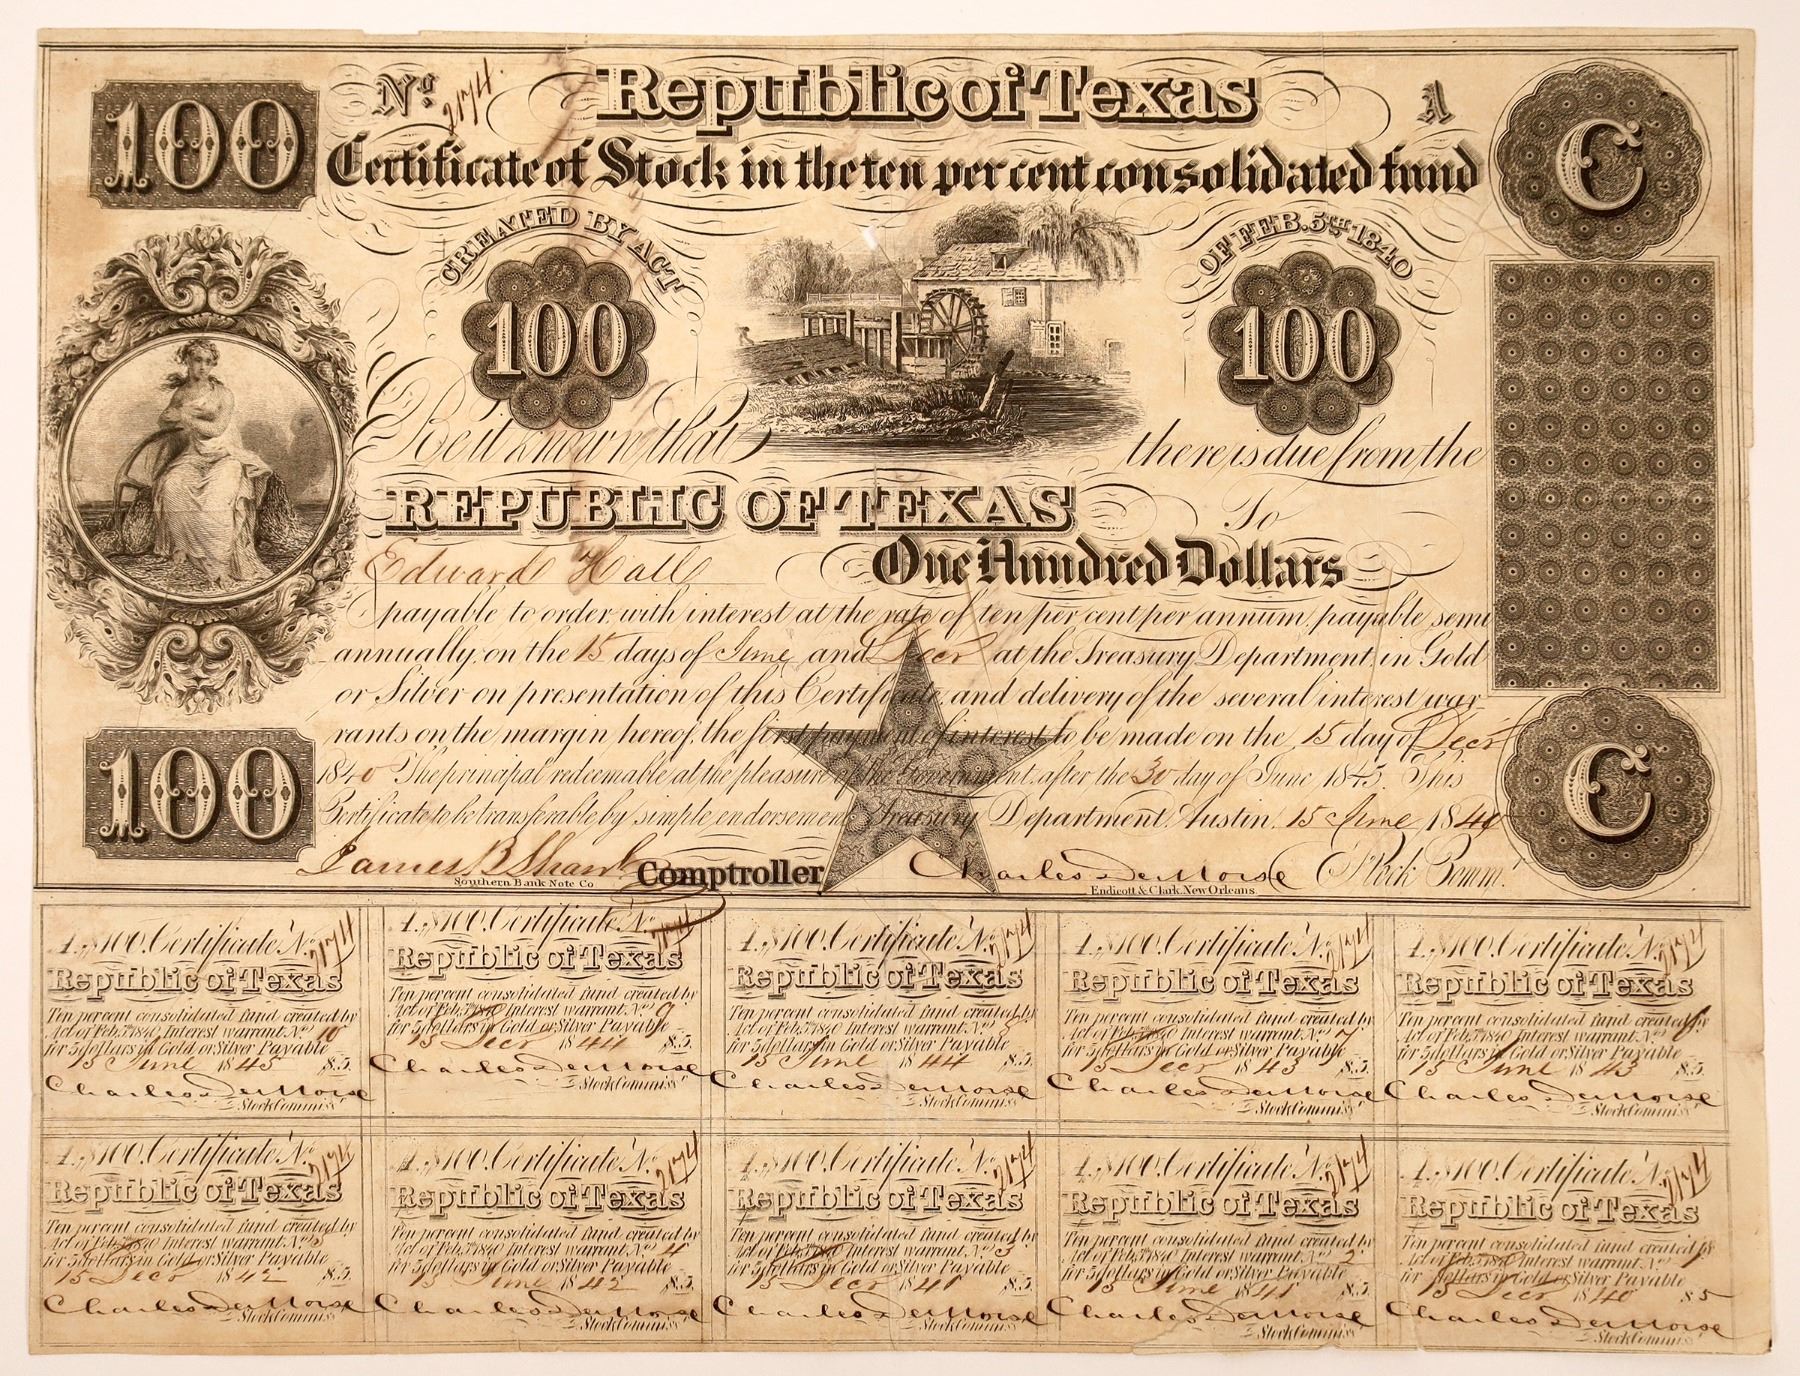 100 No. 2174. Republic of Texas A C
Certificate of Stock in the ten per cent consolidated fund
CREATED BY ACT OF FEB. 5TH 1840
100 100
Be it known that there is due from the
REPUBLIC OF TEXAS To
Edward Hall One Hundred Dollars
payable to order, with interest at the rate of ten per cent per annum, payable semi
annually, on the 15 days of June and Decr at the Treasury Department, in Gold
or Silver on presentation of this Certificate, and delivery of the several interest war-
rants on the margin hereof, the first payment of interest to be made on the 15 day of Decr
1840 The principal redeemable at the pleasure of the Government, after the 30 day of June 1845. This
Certificate to be transferable by simple endorsement Treasury Department, Austin, 15 June 1840
100 C
James B Shaw Comptroller Charles DeMorse Stock Commr.
Southern Bank Note Co Endicott & Clark, New Orleans.
A. $100. Certificate No. 2174
Republic of Texas
Ten percent consolidated fund created by
Act of Feb. 5th 1840 Interest warrant No. 10
for 5 dollars in Gold or Silver Payable
15 June 1845 $5.
Charles DeMorse
Stock Commiss
A. $100. Certificate No. 2174
Republic of Texas
Ten percent consolidated fund created by
Act of Feb. 5th 1840 Interest warrant No. 9
for 5 dollars in Gold or Silver Payable
15 Decr 1844 $5.
Charles DeMorse
Stock Commiss
A. $100. Certificate No. 2174
Republic of Texas
Ten percent consolidated fund created by
Act of Feb. 5th 1840 Interest warrant No. 8
for 5 dollars in Gold or Silver Payable
15 June 1844 $5.
Charles DeMorse
Stock Commiss
A. $100. Certificate No. 2174
Republic of Texas
Ten percent consolidated fund created by
Act of Feb. 5th 1840 Interest warrant No. 7
for 5 dollars in Gold or Silver Payable
15 Decr 1843 $5.
Charles DeMorse
Stock Commiss
A. $100. Certificate No. 2174
Republic of Texas
Ten percent consolidated fund created by
Act of Feb. 5th 1840 Interest warrant No. 6
for 5 dollars in Gold or Silver Payable
15 June 1843 $5.
Charles DeMorse
Stock Commiss
A. $100. Certificate No. 2174
Republic of Texas
Ten percent consolidated fund created by
Act of Feb. 5th 1840 Interest warrant No. 5
for 5 dollars in Gold or Silver Payable
15 Decr 1842 $5.
Charles DeMorse
Stock Commiss
A. $100. Certificate No. 2174
Republic of Texas
Ten percent consolidated fund created by
Act of Feb. 5th 1840 Interest warrant No. 4
for 5 dollars in Gold or Silver Payable
15 June 1842 $5.
Charles DeMorse
Stock Commiss
A. $100. Certificate No. 2174
Republic of Texas
Ten percent consolidated fund created by
Act of Feb. 5th 1840 Interest warrant No. 3
for 5 dollars in Gold or Silver Payable
15 Decr 1841 $5.
Charles DeMorse
Stock Commiss
A. $100. Certificate No. 2174
Republic of Texas
Ten percent consolidated fund created by
Act of Feb. 5th 1840 Interest warrant No. 2
for 5 dollars in Gold or Silver Payable
15 June 1841 $5.
Charles DeMorse
Stock Commiss
A. $100. Certificate No. 2174
Republic of Texas
Ten percent consolidated fund created by
Act of Feb. 5th 1840 Interest warrant No. 1
for 5 dollars in Gold or Silver Payable
15 Decr 1840 $5
Charles DeMorse
Stock Commiss